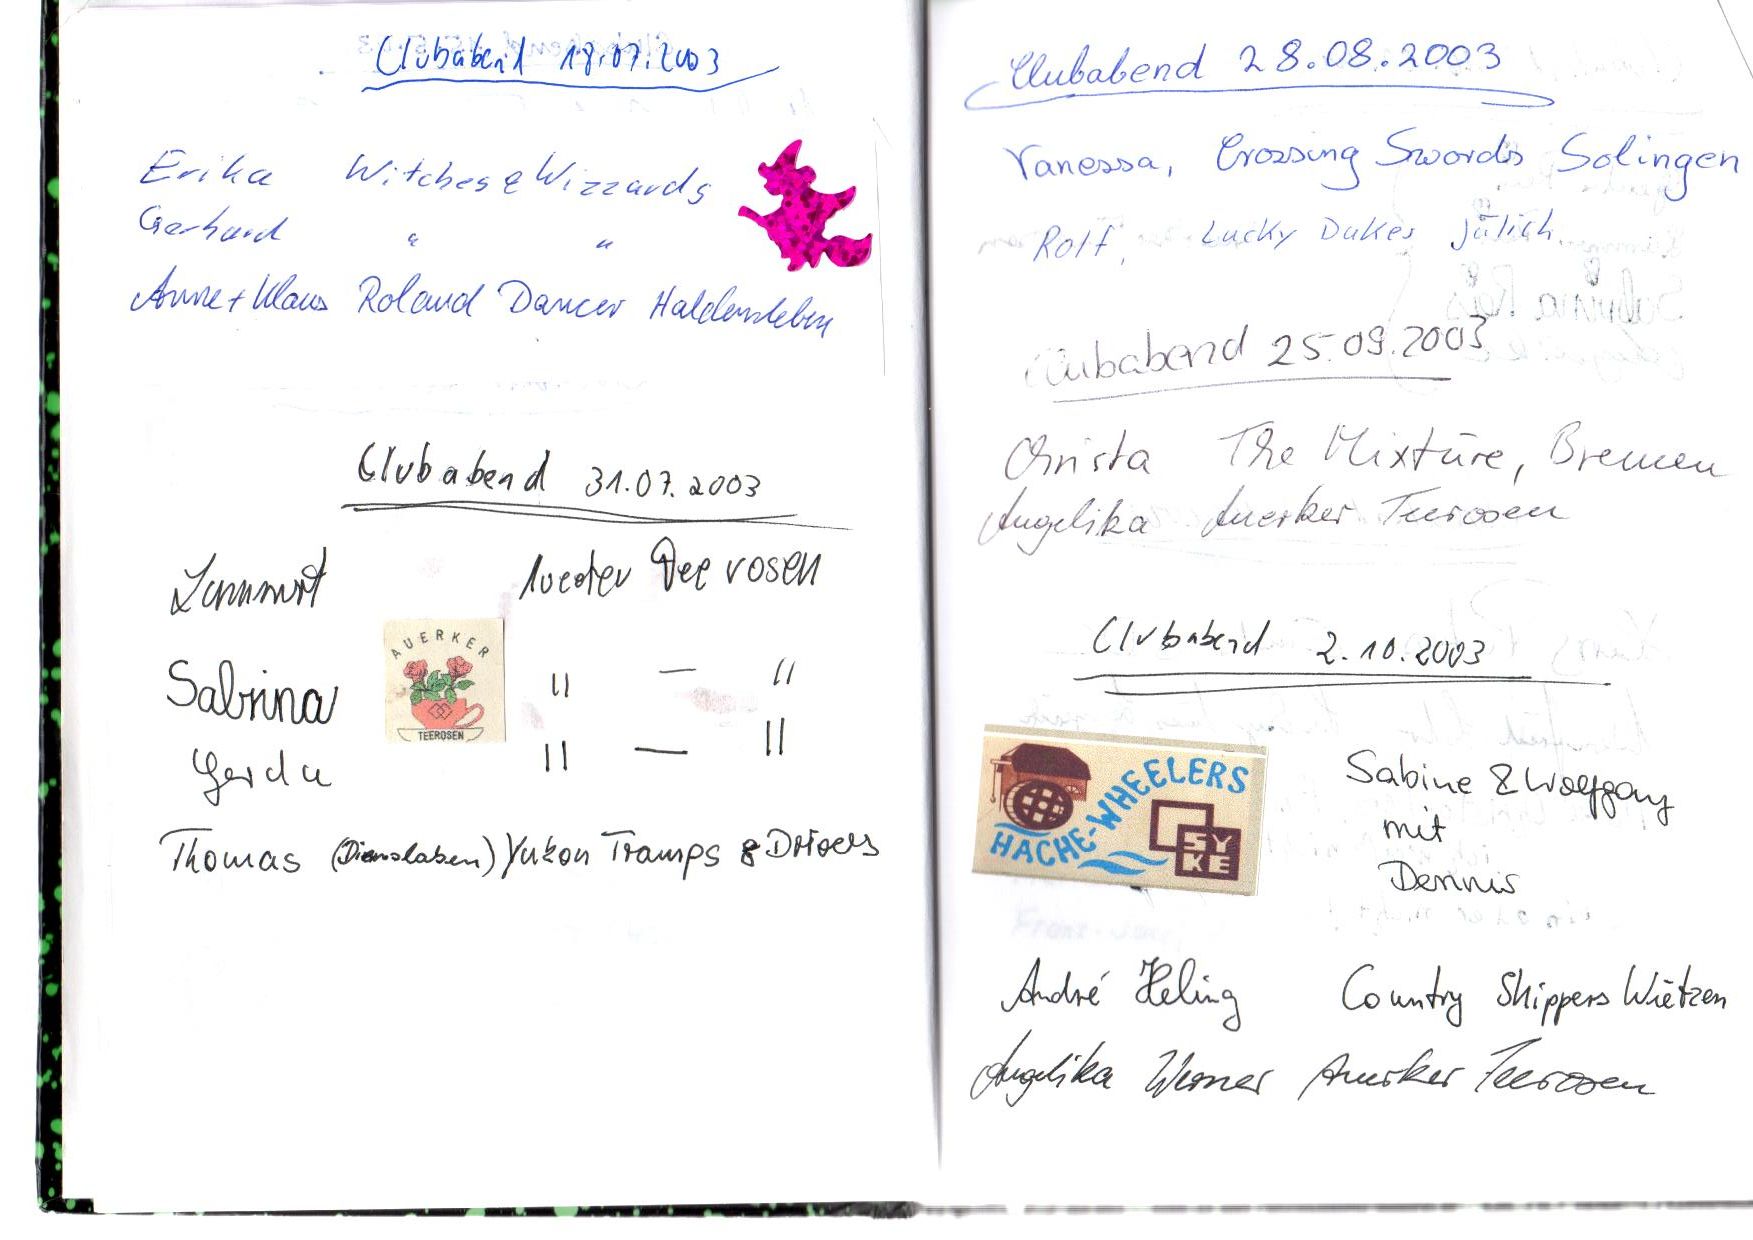 Clubabend 18.07.2003
Erika Witches & Wizzards
Gerhard " "
Anne + Klaus Roland Dancer Haldensleben
Clubabend 31.07.2003
Teerosen
AUERKER
TEEROSEN
Sabrina " — "
Gerda " — "
Thomas (Dienslaken) Yukon Tramps & Drivers
Clubabend 28.08.2003
Vanessa, Crossing Swords Solingen
Rolf, Lucky Dukes Jülich
Clubabend 25.09.2003
Christa The Mixture, Bremen
Angelika Auerker Teerosen
Clubabend 2.10.2003
HACHE-WHEELERS
SY
KE
Sabine & Wolfgang
mit
Dennis
André Heling Country Skippers Wietzen
Angelika Werner Auerker Teerosen